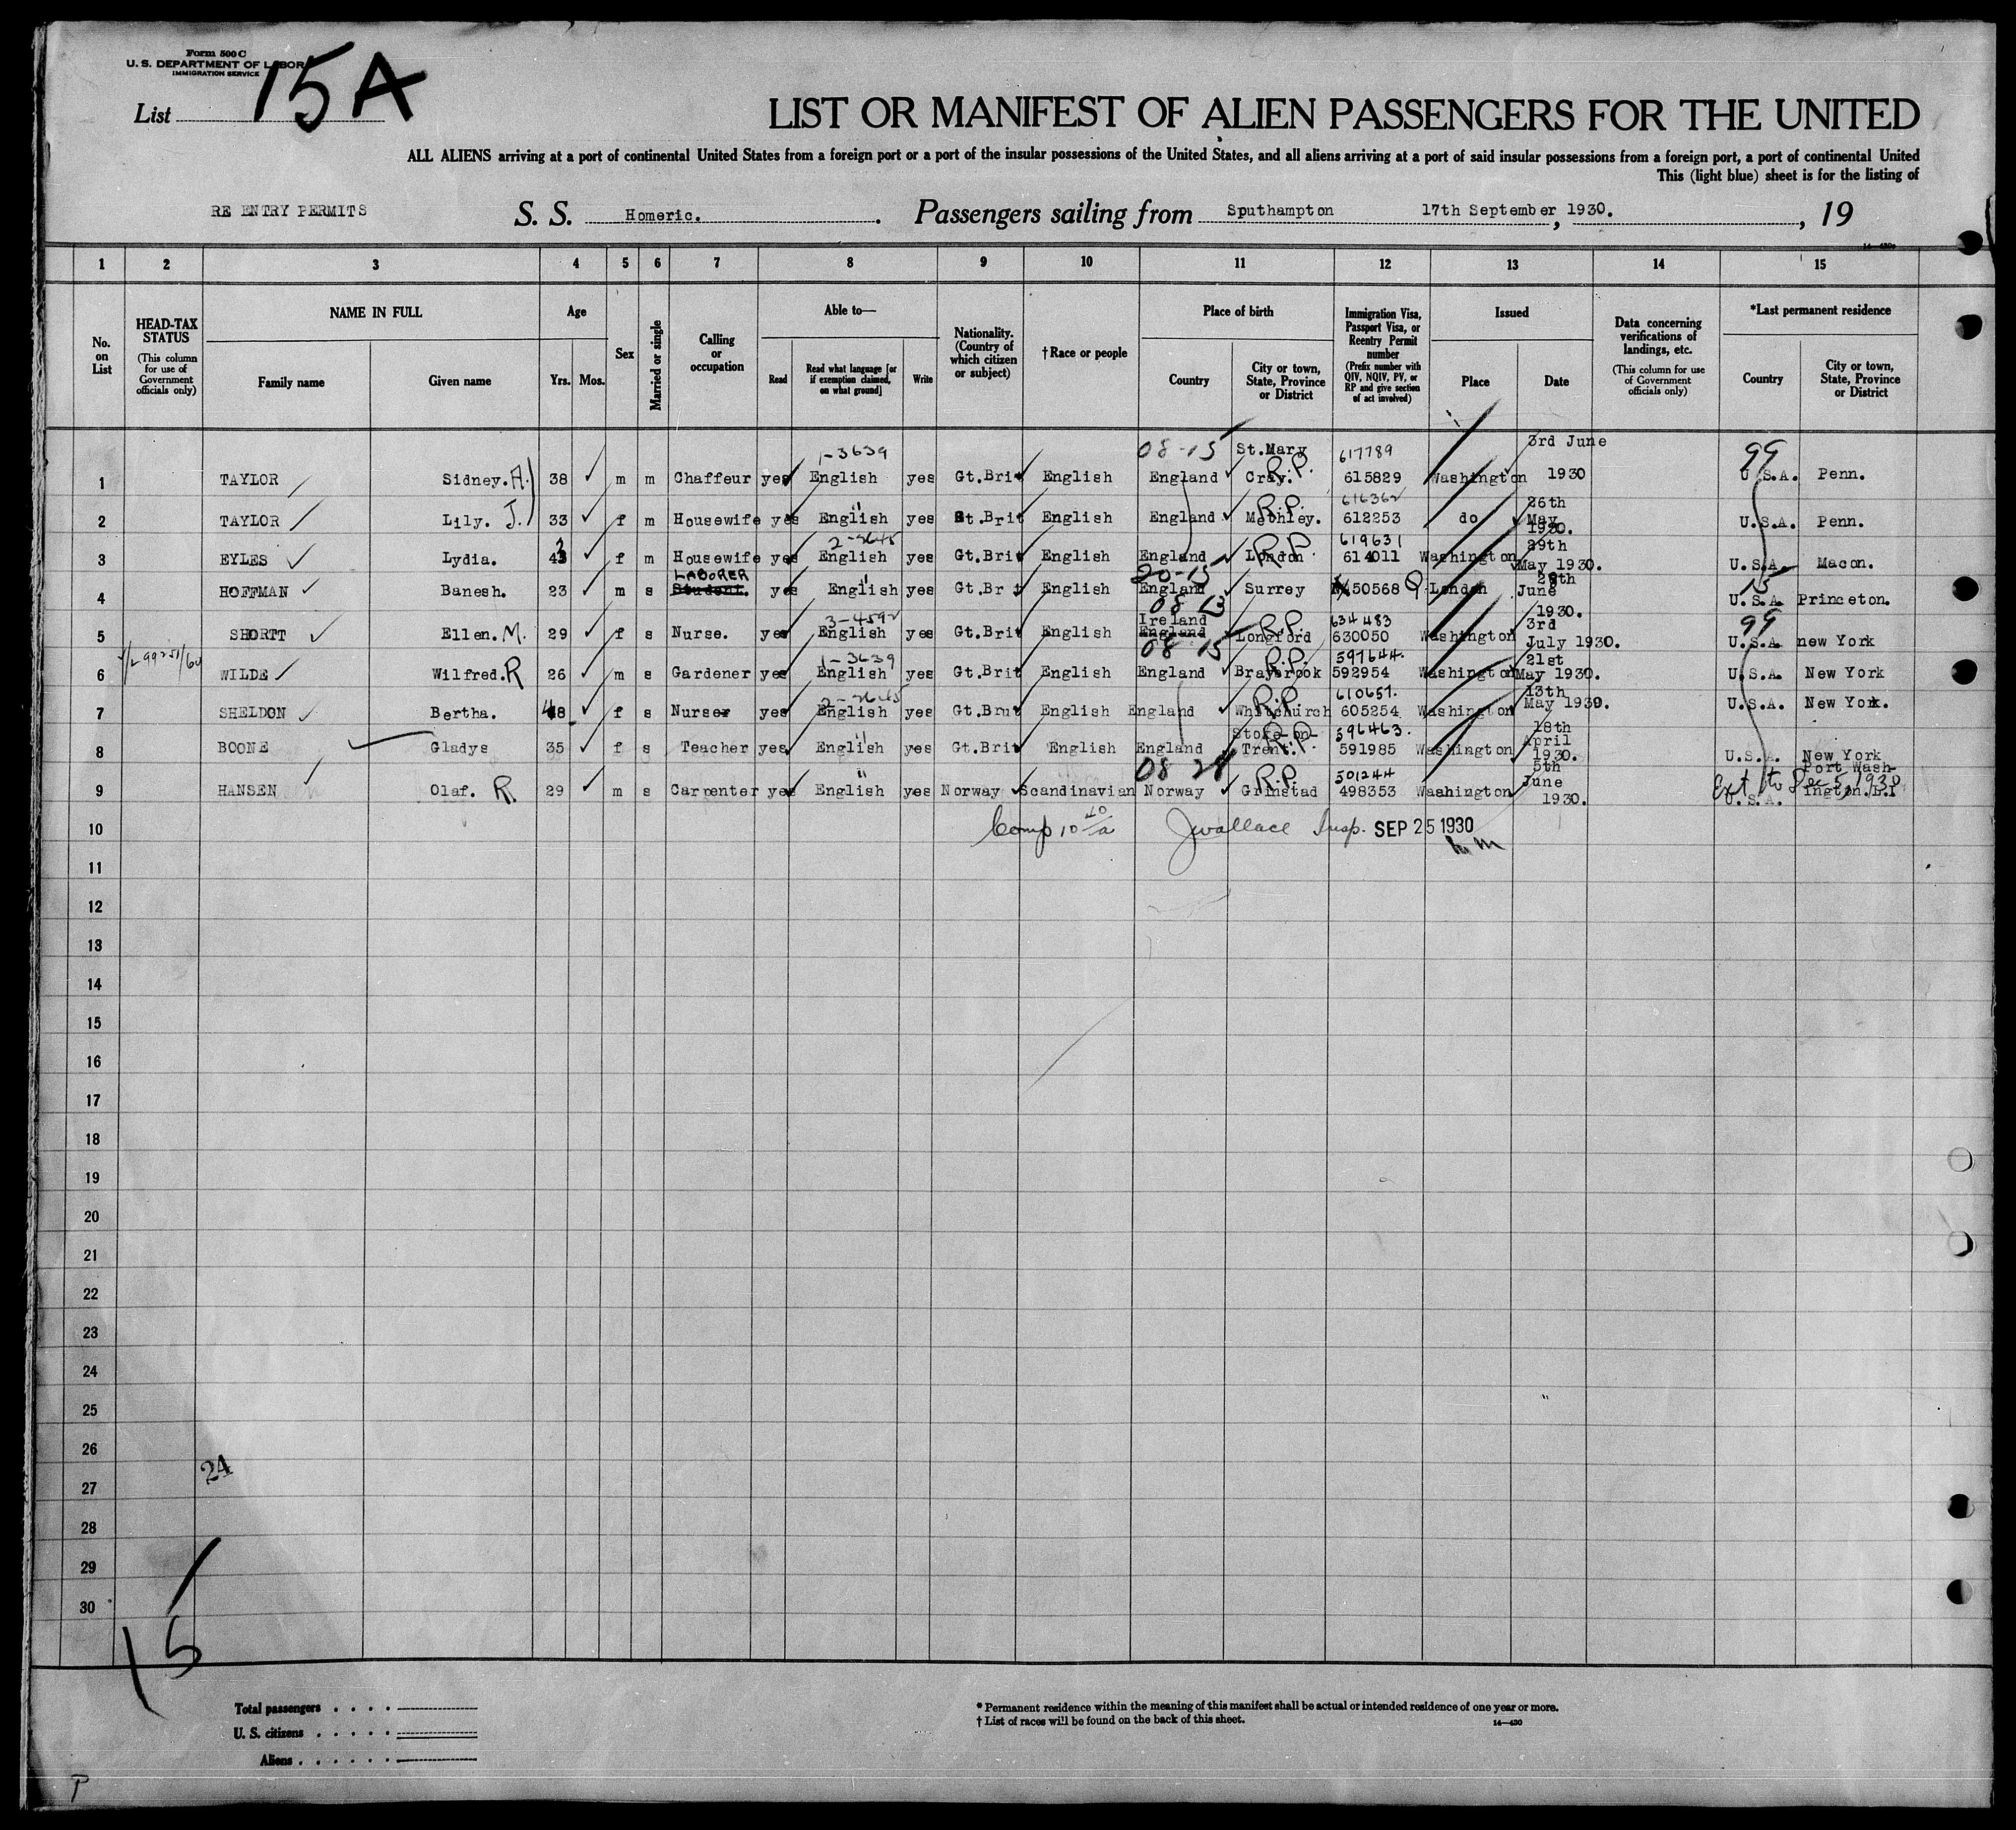 Form 500 C
U. S. DEPARTMENT OF LABOR
IMMIGRATION SERVICE
List 15A
LIST OR MANIFEST OF ALIEN PASSENGERS FOR THE UNITED
ALL ALIENS arriving at a port of continental United States from a foreign port or a port of the insular possessions of the United States, and all aliens arriving at a port of said insular possessions from a foreign port, a port of continental United
This (light blue) sheet is for the listing of
RE ENTRY PERMITS S. S. Homeric. Passengers sailing from Sputhampton 17th September 1930. , 19
14—430
1 2 3 4 5 6 7 8 9 10 11 12 13 14 15
No. on List
HEAD-TAX STATUS (This column for use of Government officials only)
NAME IN FULL Family name Given name
Age Yrs. Mos.
Sex
Married or single
Calling or occupation
Able to— Read Read what language [or if exemption claimed, on what ground] Write
Nationality. (Country of which citizen or subject)
† Race or people
Place of birth Country City or town, State, Province or District
Immigration Visa, Passport Visa, or Reentry Permit number (Prefix number with QIV, NQIV, PV, or RP and give section of act involved)
Issued Place Date
Data concerning verifications of landings, etc. (This column for use of Government officials only)
*Last permanent residence Country City or town, State, Province or District
1-3639 08-15 St.Mary 617789 3rd June 99
1 TAYLOR Sidney. A. 38 m m Chaffeur yes English yes Gt.Brit English England Cray. R.P. 615829 Washington 1930 U.S.A. Penn.
" R.P. 616362 26th
2 TAYLOR Lily. J. 33 f m Housewife yes English yes Gt.Brit English England 612253 do May 1930. U.S.A. Penn.
2-2645 R.P. 619631 29th
3 EYLES Lydia. 43 f m Housewife yes English yes Gt.Brit English England London 614011 Washington May 1930. U.S.A. Macon.
LABORER " 20-15 15
4 HOFFMAN Banesh. 23 m s Student. yes English yes Gt.Br t English England Surrey 50568 Q London June 1930. U.S.A. Princeton.
3-4592 08 13 Ireland R.P. 634483 3rd 99
5 SHORTT Ellen. M. 29 f s Nurse. yes English yes Gt.Brit English England Longford 630050 Washington July 1930. U.S.A. new York
1-3639 08 15 R.P. 597644. 21st
6 WILDE Wilfred. R 26 m s Gardener yes English yes Gt.Brit English England Braybrook 592954 Washington May 1930. U.S.A. New York
2-2645 R.P. 610657. 13th
7 SHELDON Bertha. 48 f s Nurse yes English yes Gt.Brut English England Whitchurch 605254 Washington May 1930. U.S.A. New York.
" Stoke-on- R.P. 596463. 18th
8 BOONE Gladys 35 f s Teacher yes English yes Gt.Brit English England Trent. 591985 Washington April 1930. U.S.A. New York
" 08 28 R.P. 501244 5th Port Wash-
9 HANSEN Olaf. R. 29 m s Carpenter yes English yes Norway Scandinavian Norway Grimstad 498353 Washington June 1930. U.S.A. ington. L.I
Ext to Dec 5, 1930
10 Comp 10 40/a JWallace Insp. SEP 25 1930
11
12
13
14
15
16
17
18
19
20
21
22
23
24
25
26
24
27
28
29
30
15
Total passengers
U. S. citizens
Aliens
* Permanent residence within the meaning of this manifest shall be actual or intended residence of one year or more.
† List of races will be found on the back of this sheet.
14—430
P